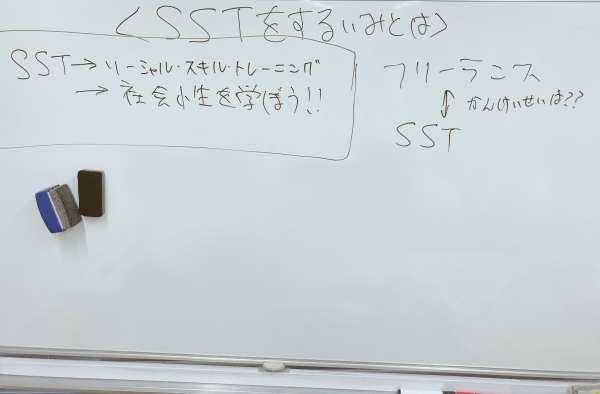 <SSTをするいみとは>
SST→ソーシャル・スキル・トレーニング
→社会性を学ぼう!!
フリーランス
↕ かんけいせいは??
SST